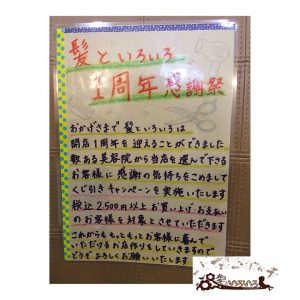 髪といろいろ
1周年感謝祭
おかげさまで 髪といろいろは
開店1周年を迎えることができました
数ある美容院から当店を選んで下さる
お客様に 感謝の気持ちをこめまして
くじ引きキャンペーンを実施いたします
税込2,500円以上お買い上げ・お支払い
のお客様を対象とさせていただきます
これからももっともっとお客様に喜んで
いただけるお店作りをしていきますので
どうぞよろしくお願いいたします